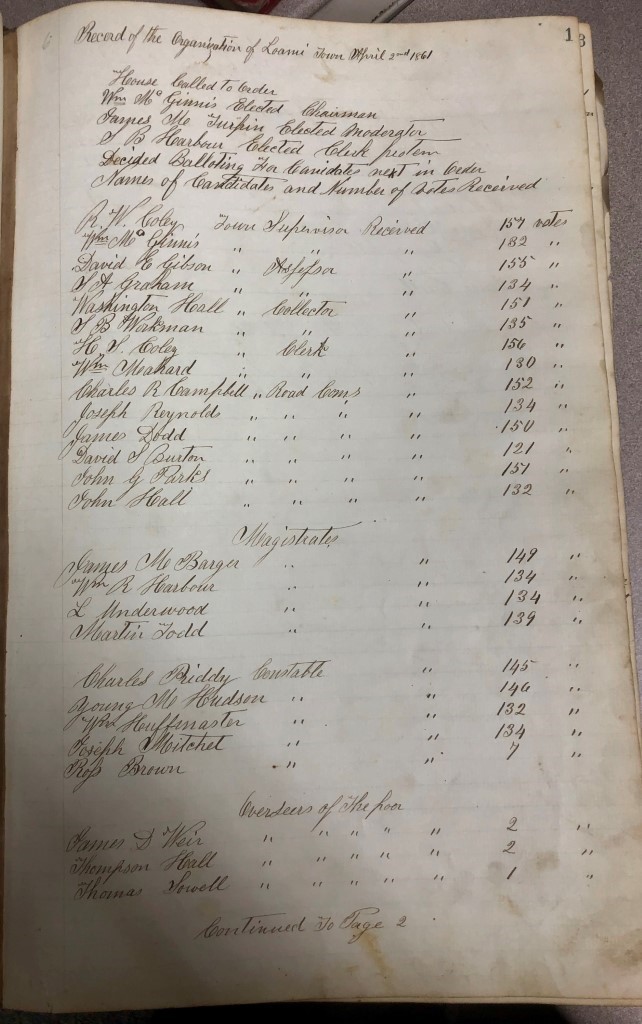 6
13
Record of the Organization of Loami Town April 2nd 1861
House Called To Order
Wm Mc Ginnis Elected Chairman
James M Turpin Elected Moderator
S B Harbour Elected Clerk protem
Decided Balloting For Canidates next in Order
Names of Candidates and Number of Votes Received
R. W. Coley Town Supervisor Received 157 votes
Wm Mc Ginnis " " " 132 "
David E Gibson " Assessor " 155 "
Graham " " " 134 "
Washington Hall " Collector " 151 "
B Workman " " " 135 "
H. S. Coley " Clerk " 156 "
Wm Meahard " " " 130 "
Charles R Campbell " Road Coms " 152 "
Joseph Reynolds " " " " 134 "
James Dodd " " " " 150 "
David S Burton " " " " 121 "
John G Parks " " " " 151 "
John Hall " " " " 132 "
Magistrates
James M Barger " " 149 "
Wm R Harbour " " 134 "
L Underwood " " 134 "
Martin Todd " " 139 "
Charles Priddy Constable " 145 "
Young M Hudson " " 146 "
Wm Huffmaster " " 132 "
Joseph Mitchel " " 134 "
Ross Brown " " 7 "
Overseers of The poor
James D Weir " " " " " 2 "
Thompson Hall " " " " " 2 "
Thomas Sowell " " " " " 1 "
Continued To Page 2